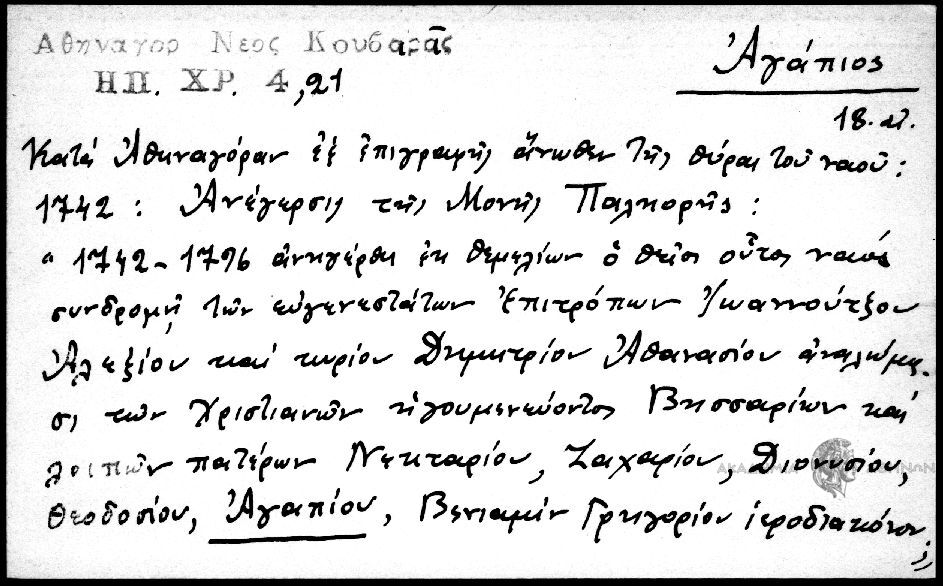 Ἀθηναγορ Νεος Κουβαρᾶς
ΗΠ. ΧΡ. 4,21
Ἀγάπιος
18. αἰ.
Κατά Ἀθηναγόραν ἐξ ἐπιγραφῆς ἄνωθεν τῆς θύρας τοῦ ναοῦ:
1742: Ἀνέγερσις τῆς Μονῆς Παληορῆς:
" 1742-1796 ἀνηγέρθη ἐκ θεμελίων ὁ θεῖος οὗτος ναός
συνδρομῇ τῶν εὐγενεστάτων Ἐπιτρόπων Ἰωαννούτζου
Ἀλεξίου καί κυρίου Δημητρίου Ἀθανασίου ἀναλώμα-
σι τῶν Χριστιανῶν ἡγουμενεύοντος Βησσαρίων καί
λοιπῶν πατέρων Νεκταρίου, Ζαχαρίου, Διονυσίου,
Θεοδοσίου, Ἀγαπίου, Βενιαμίν Γρηγορίου ἱεροδιακόνου"